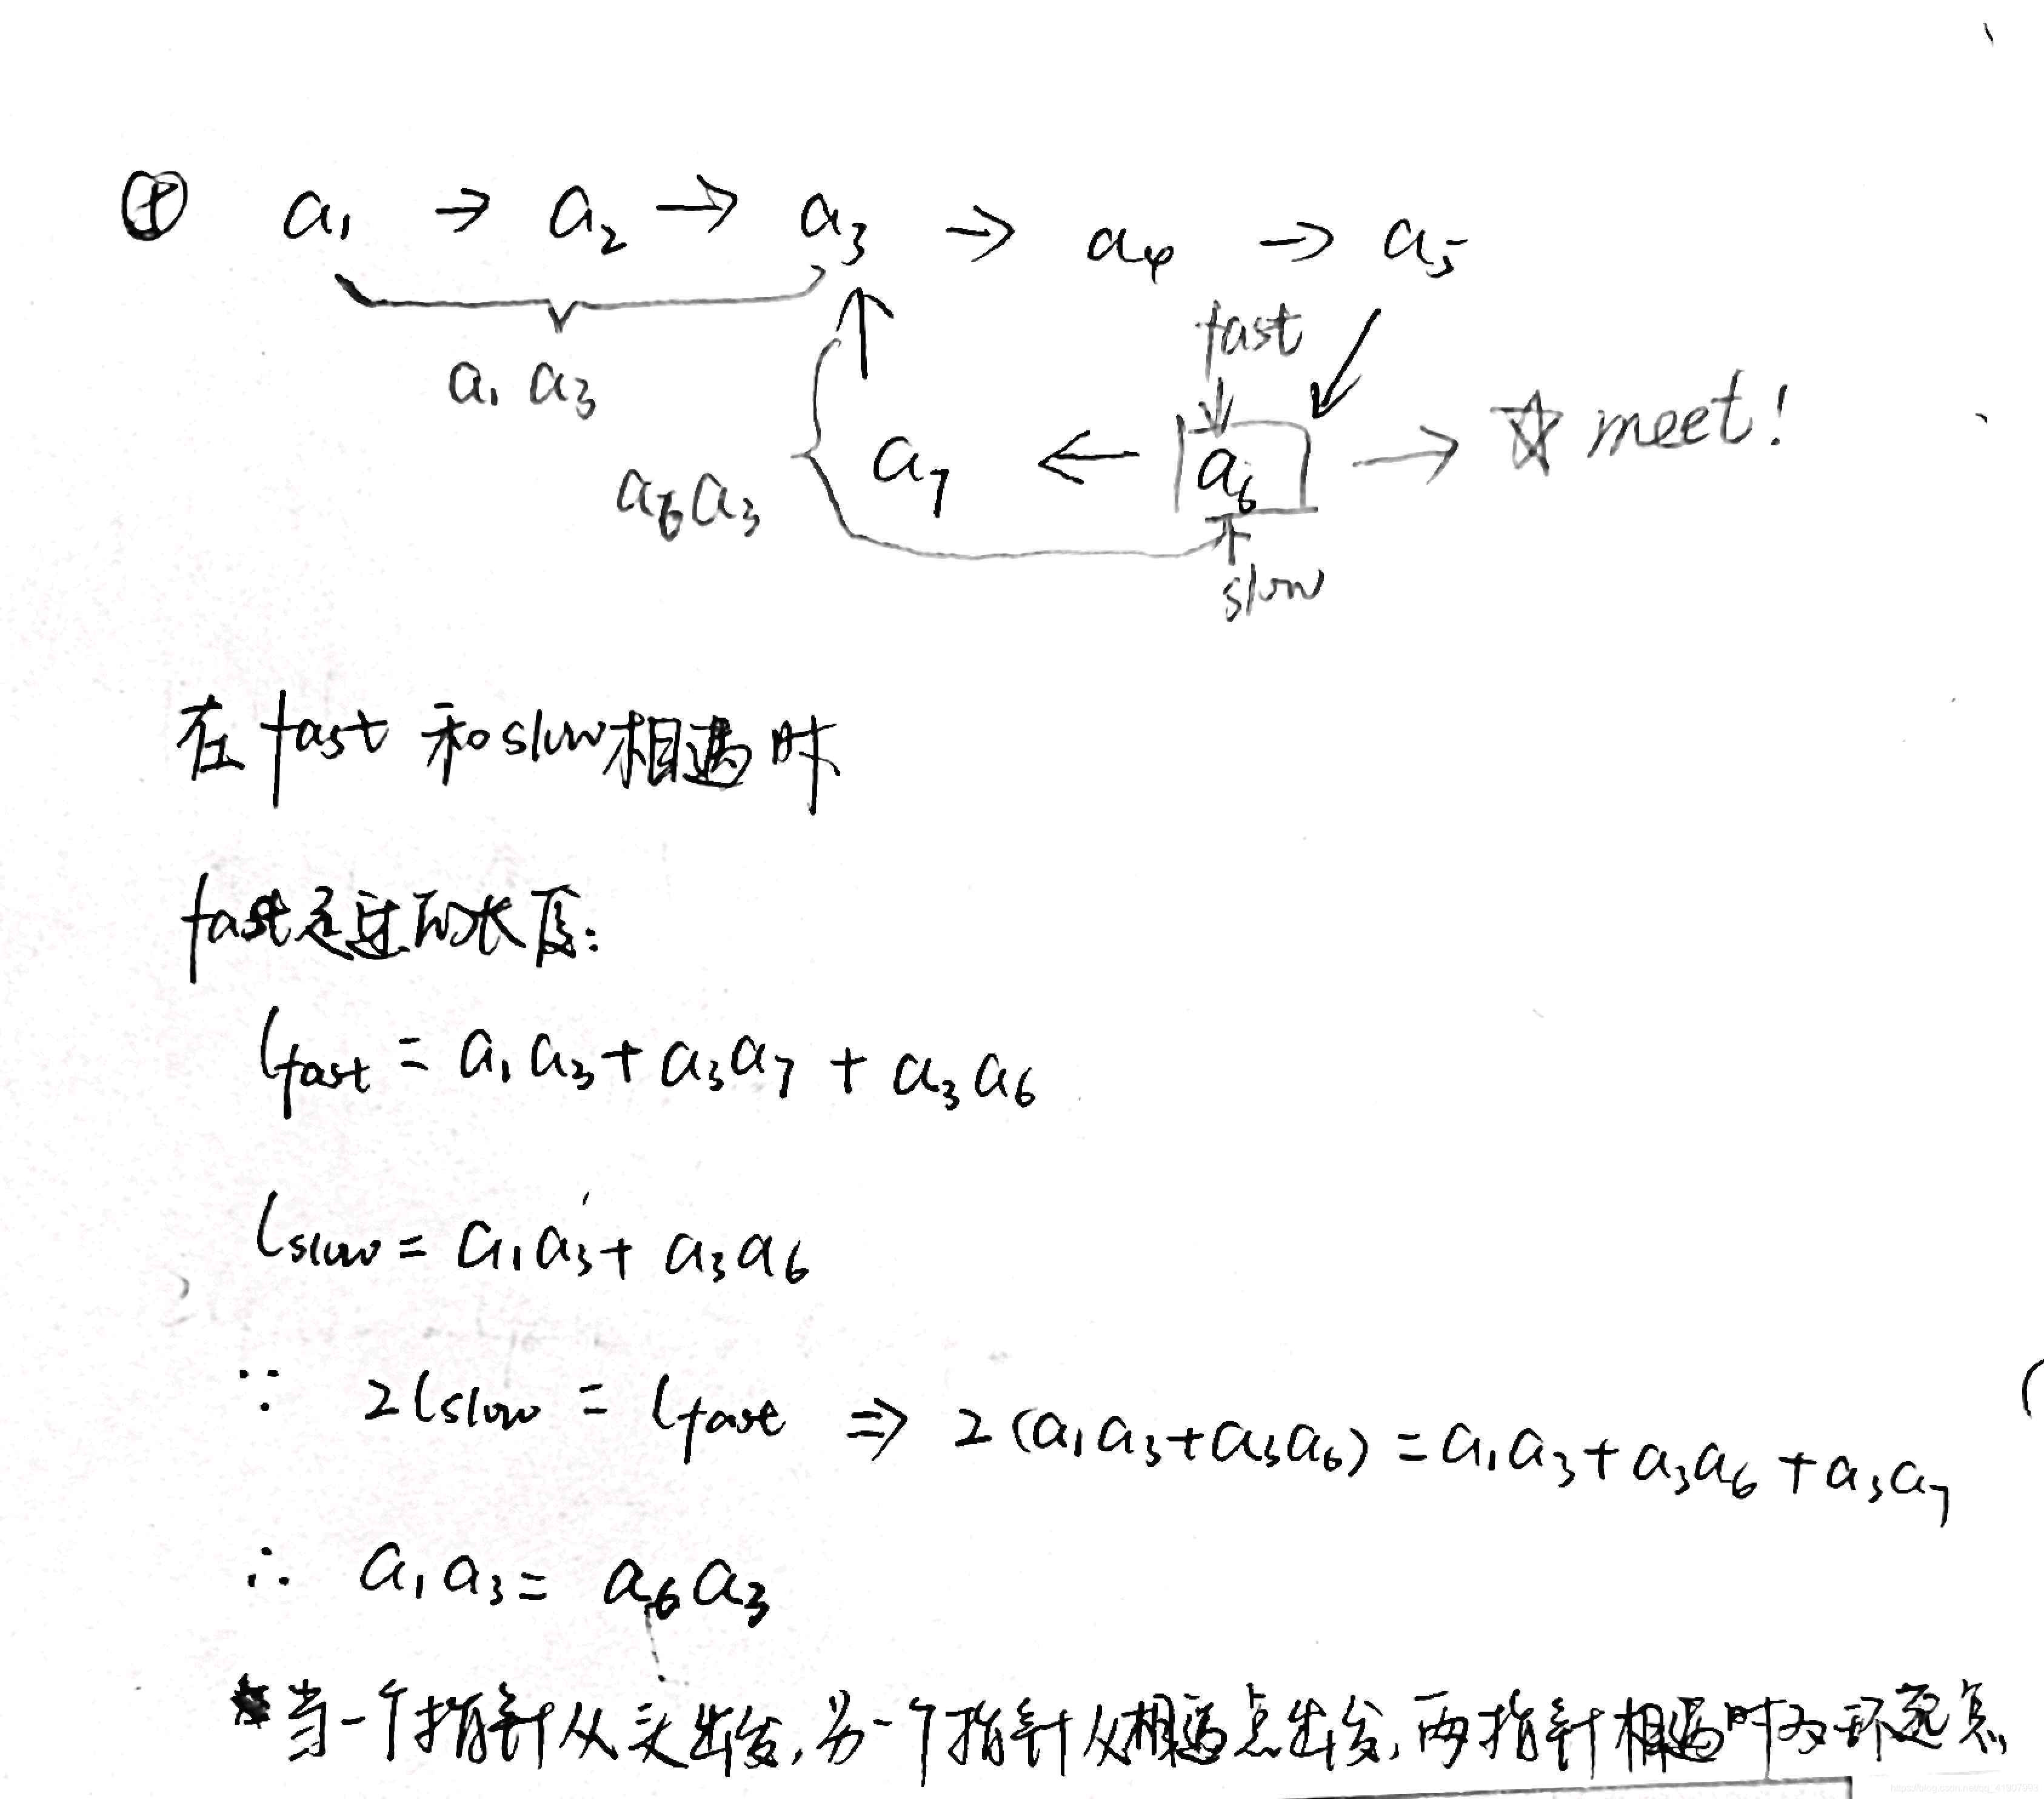 ④ a₁ → a₂ → a₃ → a₄ → a₅
fast
a₁ a₃
a₇ ← a₆ → ☆ meet!
a₆a₃
slow
在fast和slow相遇时
fast走过的长度:
lfast = a₁a₃+a₃a₇ + a₃a₆
lslow = a₁a₃+ a₃a₆
∵ 2lslow = lfast ⇒ 2(a₁a₃+a₃a₆)=a₁a₃+a₃a₆+a₃a₇
∴ a₁a₃= a₆a₃
*当一个指针从头出发,另一个指针从相遇点出发,两指针相遇时为环起点